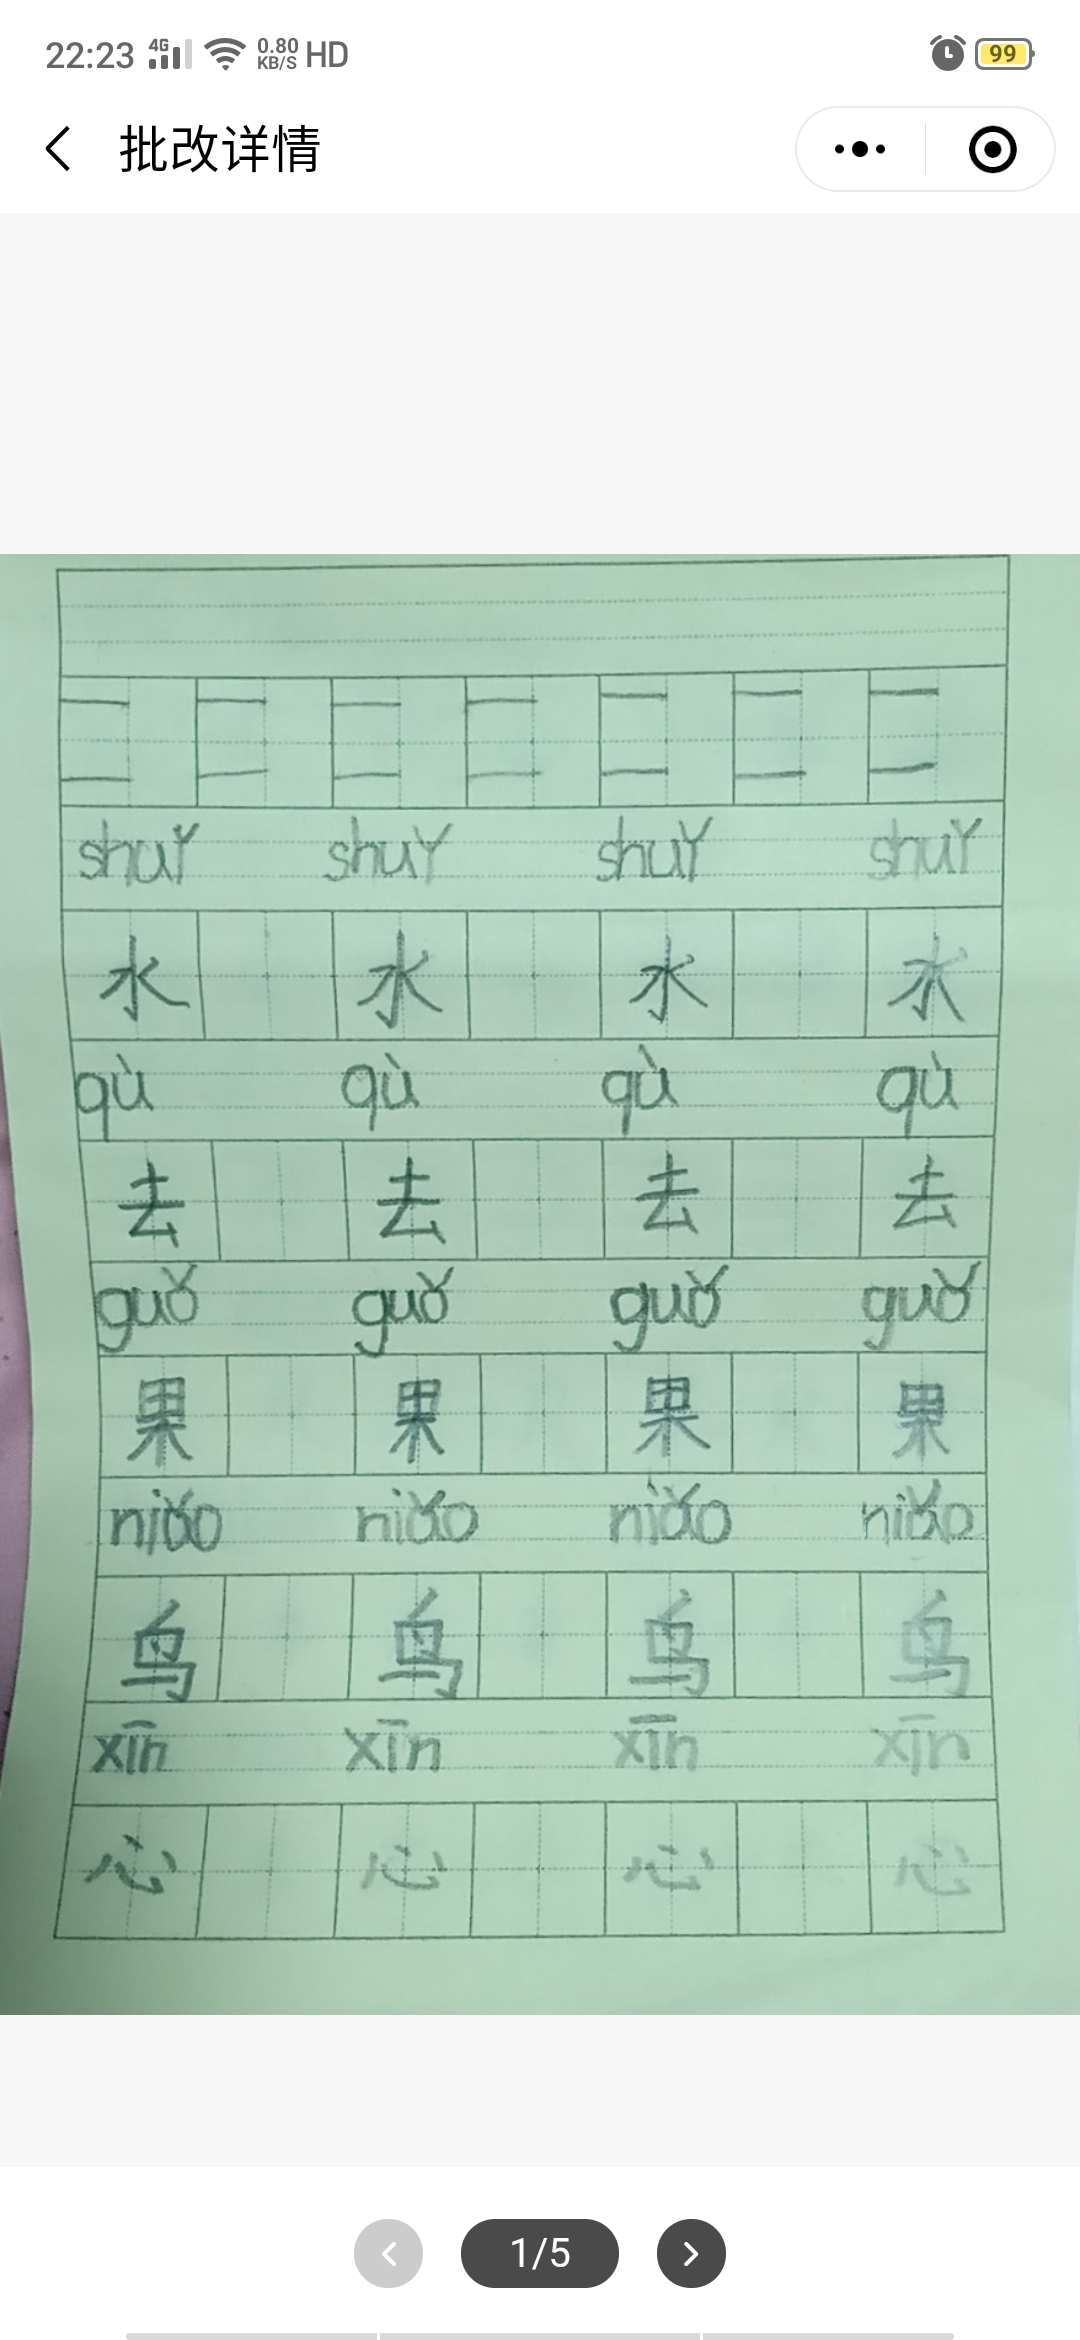 22:23 4G 0.80 KB/S HD 99
批改详情
shuǐ shuǐ shuǐ shuǐ
水 水 水 水
qù qù qù qù
去 去 去 去
guǒ guǒ guǒ guǒ
果 果 果 果
niǎo niǎo niǎo niǎo
鸟 鸟 鸟 鸟
xīn xīn xīn xīn
心 心 心 心
1/5